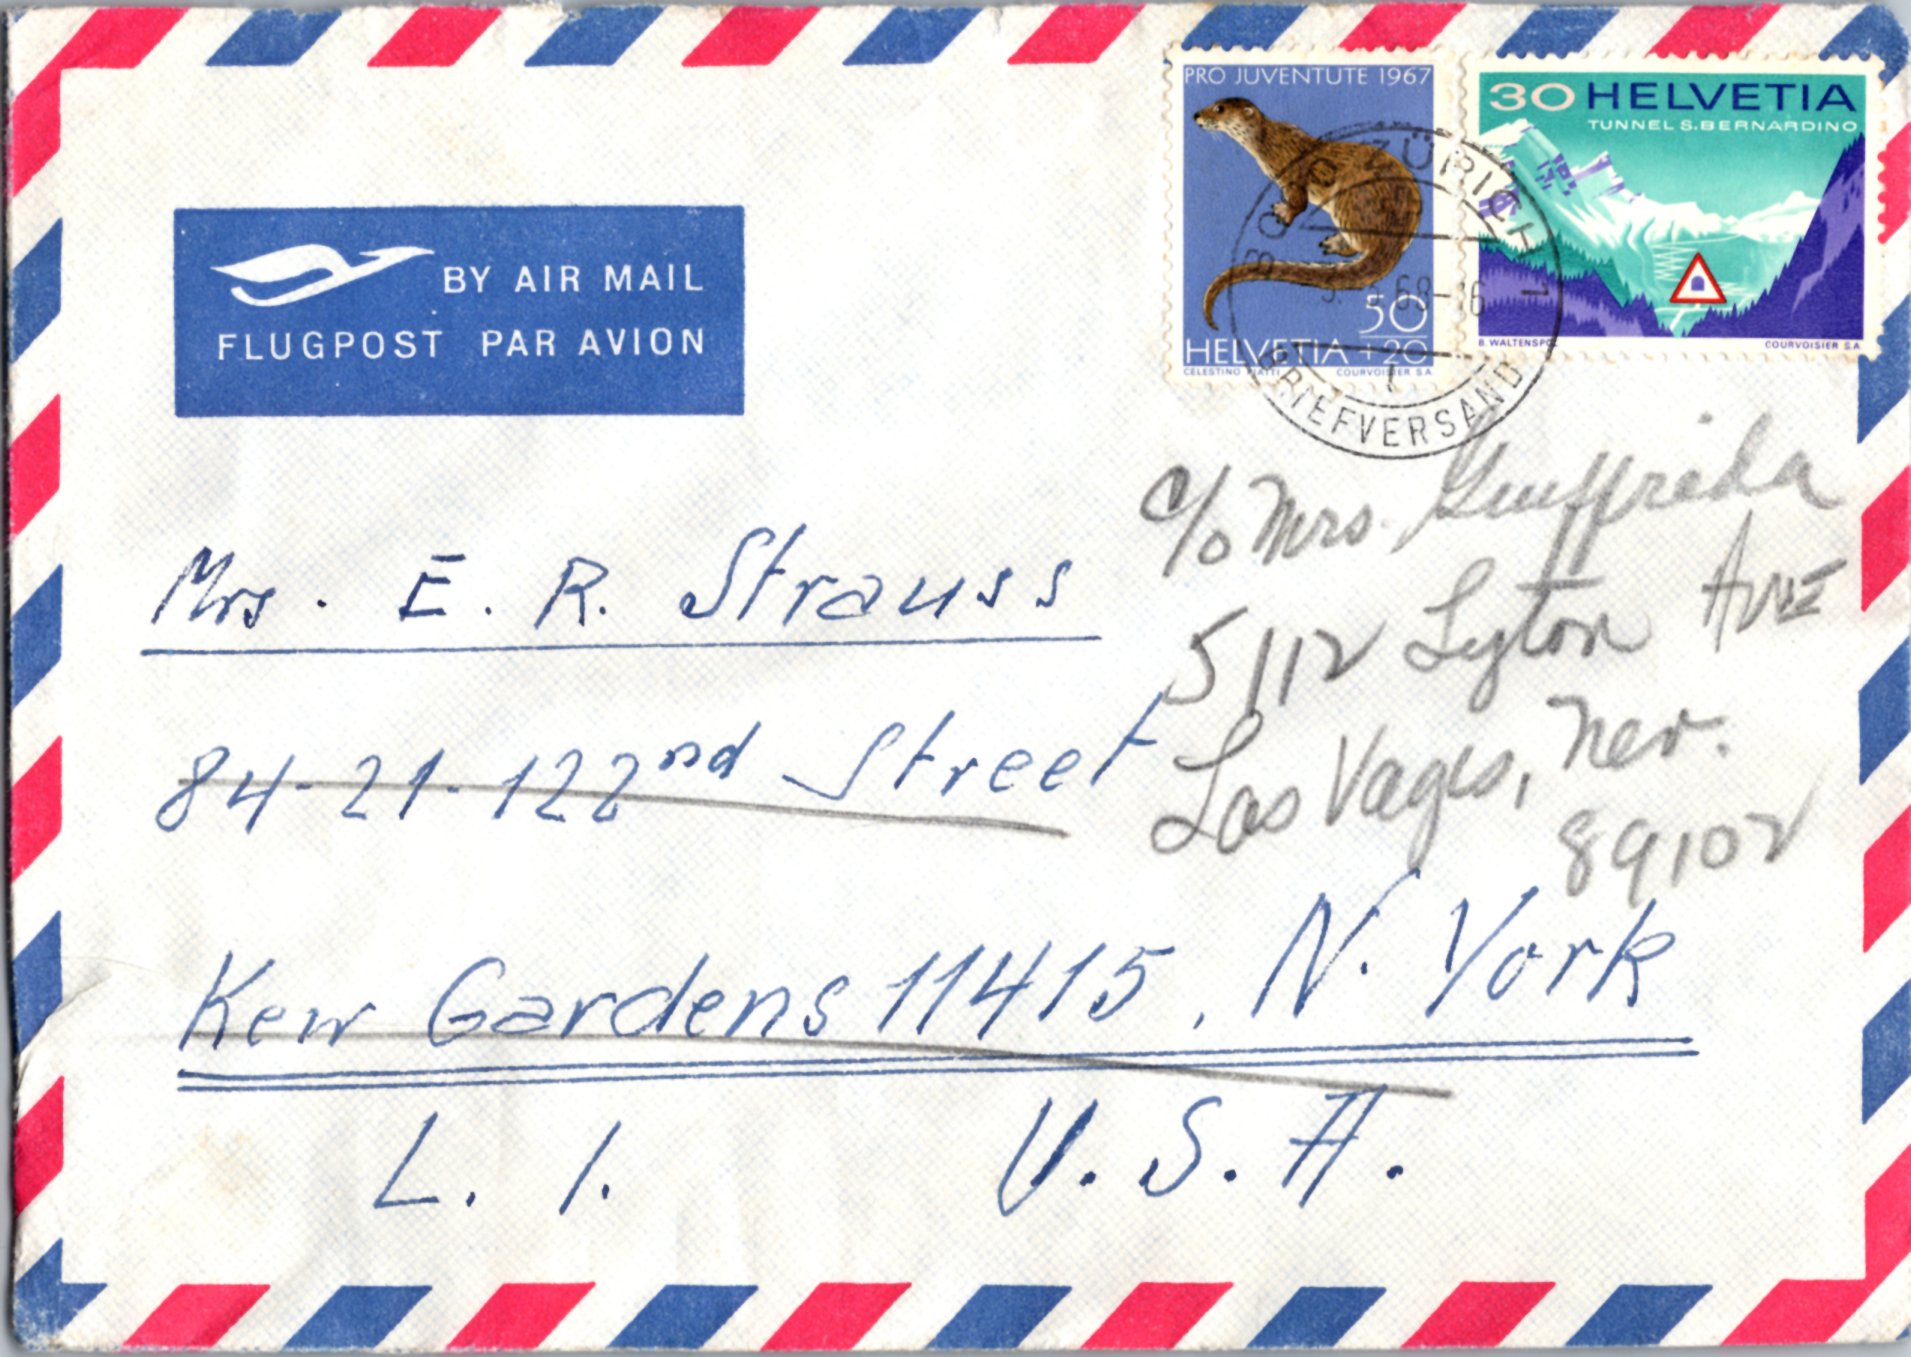 BY AIR MAIL
FLUGPOST PAR AVION
PRO JUVENTUTE 1967
50
HELVETIA +20
CELESTINO PIATTI COURVOISIER S.A
30 HELVETIA
TUNNEL S.BERNARDINO
B. WALTENSP COURVOISIER S.A
ZÜRICH
68-16
BRIEFVERSAND
c/o Mrs. Guiffrida
5112 Lyton AVE
Las Vages, Nev.
89102
Mrs. E. R. Strauss
84-21-122nd Street
Kew Gardens 11415, N. York
L. I. U.S.A.